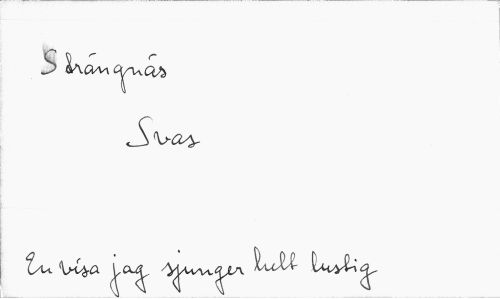 Strängnäs
Svas
En visa jag sjunger helt lustig